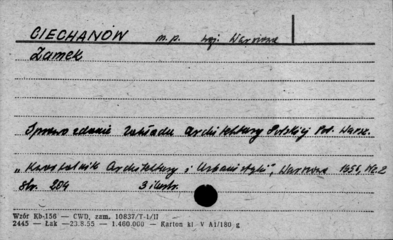 CIECHANÓW m.p. woj. Warszawa
Zamek
Sprawozdanie Zakładu Architektury Polskiej Pol. Warsz.
„Kwartalnik Architektury i Urbanistyki", Warszawa 1956, Nr. 2
Str. 204 3 ilustr.
Wzór Kb-156 — CWD, zam. 10837/T-1/II
2445 — Łak —23.8.55 — 1.460.000 — Karton kl V A1/180 g